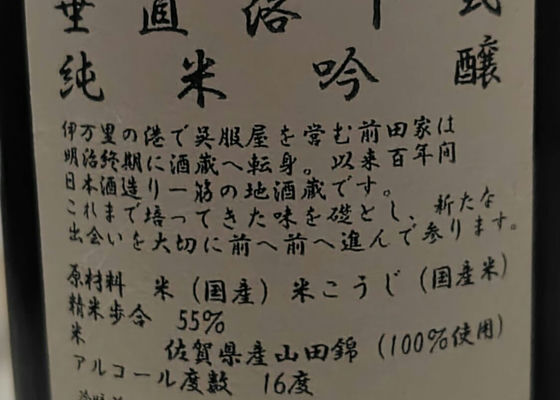 垂直落下式
純米吟醸
伊万里の港で呉服屋を営む前田家は
明治終期に酒蔵へ転身。以来百年間
日本酒造り一筋の地酒蔵です。
これまで培ってきた味を礎とし、新たな
出会いを大切に前へ前へ進んで参ります。
原材料 米(国産)米こうじ(国産米)
精米歩合 55%
米 佐賀県産山田錦(100%使用)
アルコール度数 16度